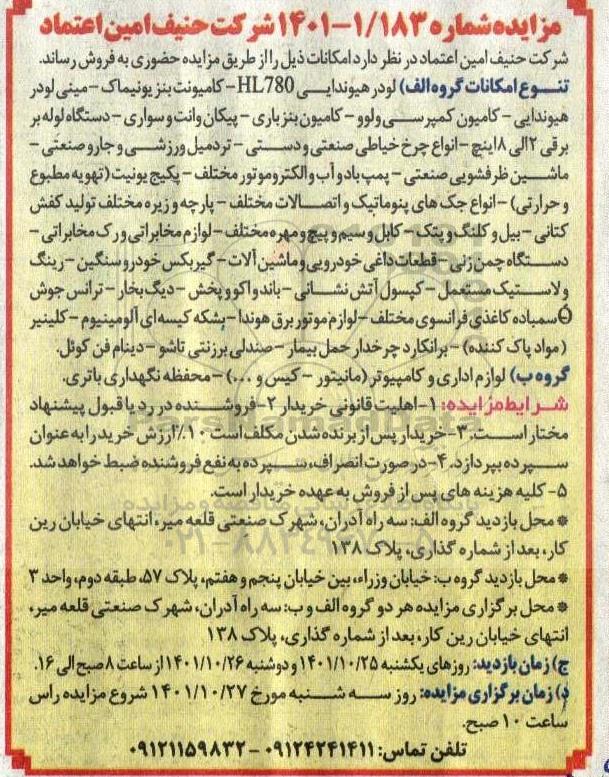 مزایده شماره ۱/۱۸۳-۱۴۰۱ شرکت حنیف امین اعتماد
شرکت حنیف امین اعتماد در نظر دارد امکانات ذیل را از طریق مزایده حضوری به فروش رساند.
تنوع امکانات گروه الف) لودر هیوندایی HL780 - کامیونت بنز یونیماک - مینی لودر
هیوندایی - کامیون کمپرسی ولوو - کامیون بنز باری - پیکان وانت و سواری - دستگاه لوله بر
برقی ۲ الی ۸ اینچ - انواع چرخ خیاطی صنعتی و دستی - تردمیل ورزشی و جارو صنعتی -
ماشین ظرفشویی صنعتی - پمپ باد و آب و الکتروموتور مختلف - پکیج یونیت (تهویه مطبوع
و حرارتی) - انواع جک های پنوماتیک و اتصالات مختلف - پارچه و زیره مختلف تولید کفش
کتانی - بیل و کلنگ و پتک - کابل و سیم و پیچ و مهره مختلف - لوازم مخابراتی و رک مخابراتی -
دستگاه چمن زنی - قطعات داغی خودرویی و ماشین آلات - گیربکس خودرو سنگین - رینگ
و لاستیک مستعمل - کپسول آتش نشانی - باند و اکو و پخش - دیگ بخار - ترانس جوش
سمباده کاغذی فرانسوی مختلف - لوازم موتور برق هوندا - بشکه کیسه ای آلومینیوم - کلینیر
(مواد پاک کننده) - برانکارد چرخدار حمل بیمار - صندلی برزنتی تاشو - دینام فن کوئل.
گروه ب) لوازم اداری و کامپیوتر (مانیتور - کیس و ...) - محفظه نگهداری باتری.
شرایط مزایده: ۱- اهلیت قانونی خریدار ۲- فروشنده در رد یا قبول پیشنهاد
مختار است. ۳- خریدار پس از برنده شدن مکلف است ۱۰٪ ارزش خرید را به عنوان
سپرده بپردازد. ۴- در صورت انصراف، سپرده به نفع فروشنده ضبط خواهد شد.
۵- کلیه هزینه های پس از فروش به عهده خریدار است.
* محل بازدید گروه الف: سه راه آدران، شهرک صنعتی قلعه میر، انتهای خیابان رین
کار، بعد از شماره گذاری، پلاک ۱۳۸
* محل بازدید گروه ب: خیابان وزراء، بین خیابان پنجم و هفتم، پلاک ۵۷، طبقه دوم، واحد ۳
* محل برگزاری مزایده هر دو گروه الف و ب: سه راه آدران، شهرک صنعتی قلعه میر،
انتهای خیابان رین کار، بعد از شماره گذاری، پلاک ۱۳۸
ج) زمان بازدید: روزهای یکشنبه ۱۴۰۱/۱۰/۲۵ و دوشنبه ۱۴۰۱/۱۰/۲۶ از ساعت ۸ صبح الی ۱۶.
د) زمان برگزاری مزایده: روز سه شنبه مورخ ۱۴۰۱/۱۰/۲۷ شروع مزایده راس
ساعت ۱۰ صبح.
تلفن تماس: ۰۹۱۲۴۲۴۱۴۱۱ - ۰۹۱۲۱۱۵۹۸۳۲